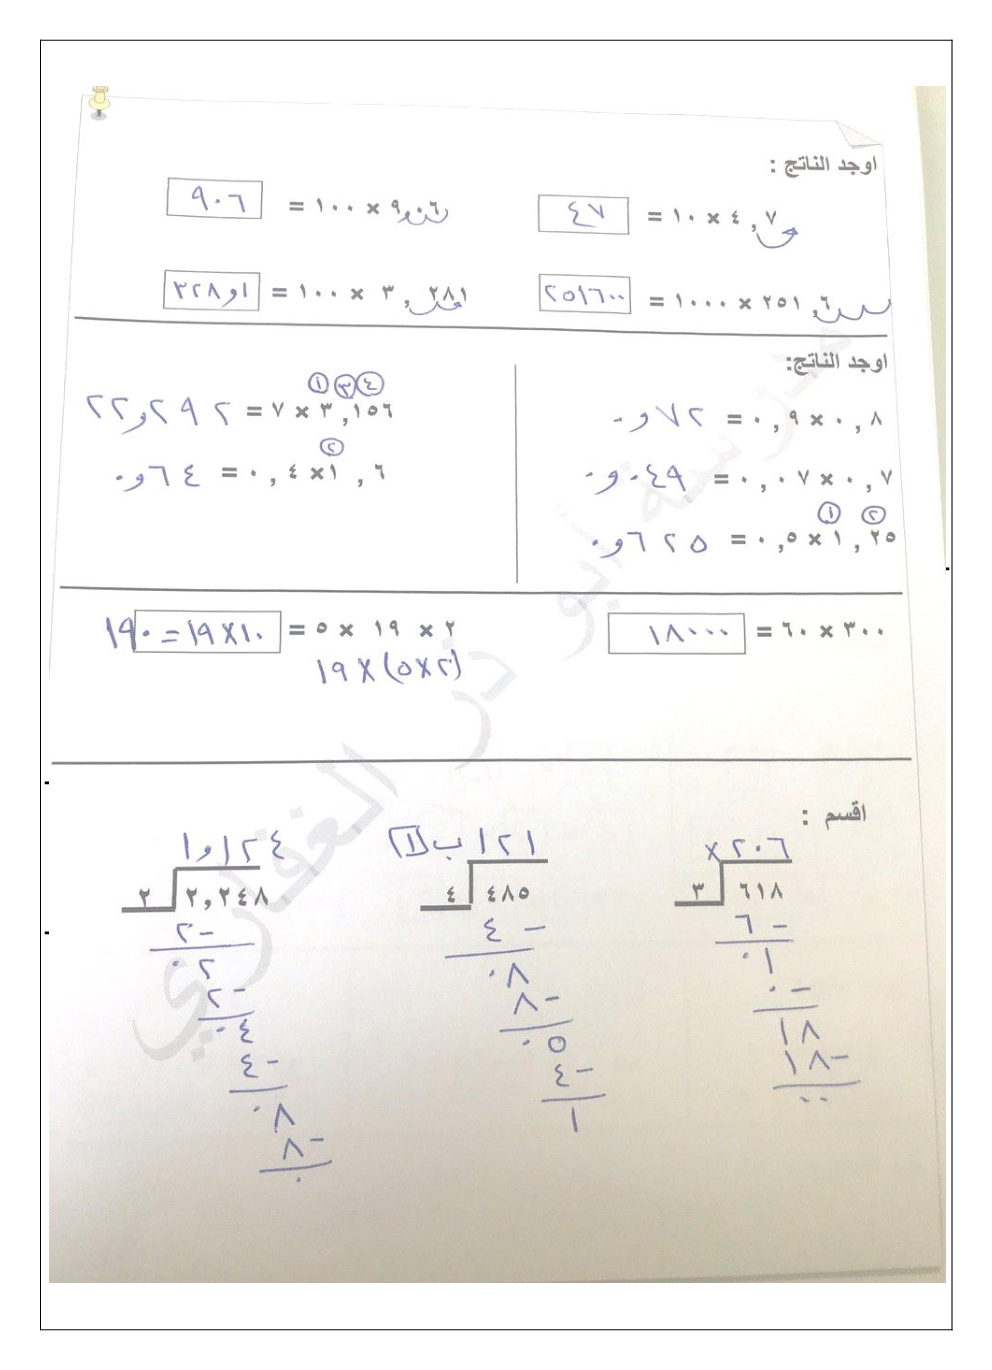 اوجد الناتج :
٤,٧ × ١٠ = ٤٧
٩,٠٦ × ١٠٠ = ٩٠٦
٢٥١,٦ × ١٠٠٠ = ٢٥١٦٠٠
٣,٢٨١ × ١٠٠ = ٣٢٨و١
اوجد الناتج:
٠,٨ × ٠,٩ = ٠و٧٢
① ③ ④
٣,١٥٦ × ٧ = ٢٢و٢٩٢
٠,٧ × ٠,٠٧ = ٠و٠٤٩
②
١,٦ × ٠,٤ = ٠و٦٤
① ②
١,٢٥ × ٠,٥ = ٠و٦٢٥
٣٠٠ × ٦٠ = ١٨٠٠٠
٢ × ١٩ × ٥ = ١٩×١٠ = ١٩٠
(٢×٥)×١٩
اقسم :
× ٢٠٦
٣ ٦١٨
- ٦
٠١
- ٠
١٨
- ١٨
٠٠
١٢١ ب ١
٤ ٤٨٥
- ٤
٠٨
- ٨
٠٥
- ٤
١
١و١٢٤
٢ ٢,٢٤٨
- ٢
٠٢
- ٢
٠٤
- ٤
٠٨
- ٨
٠
مدرسة أبو ذر الغفاري